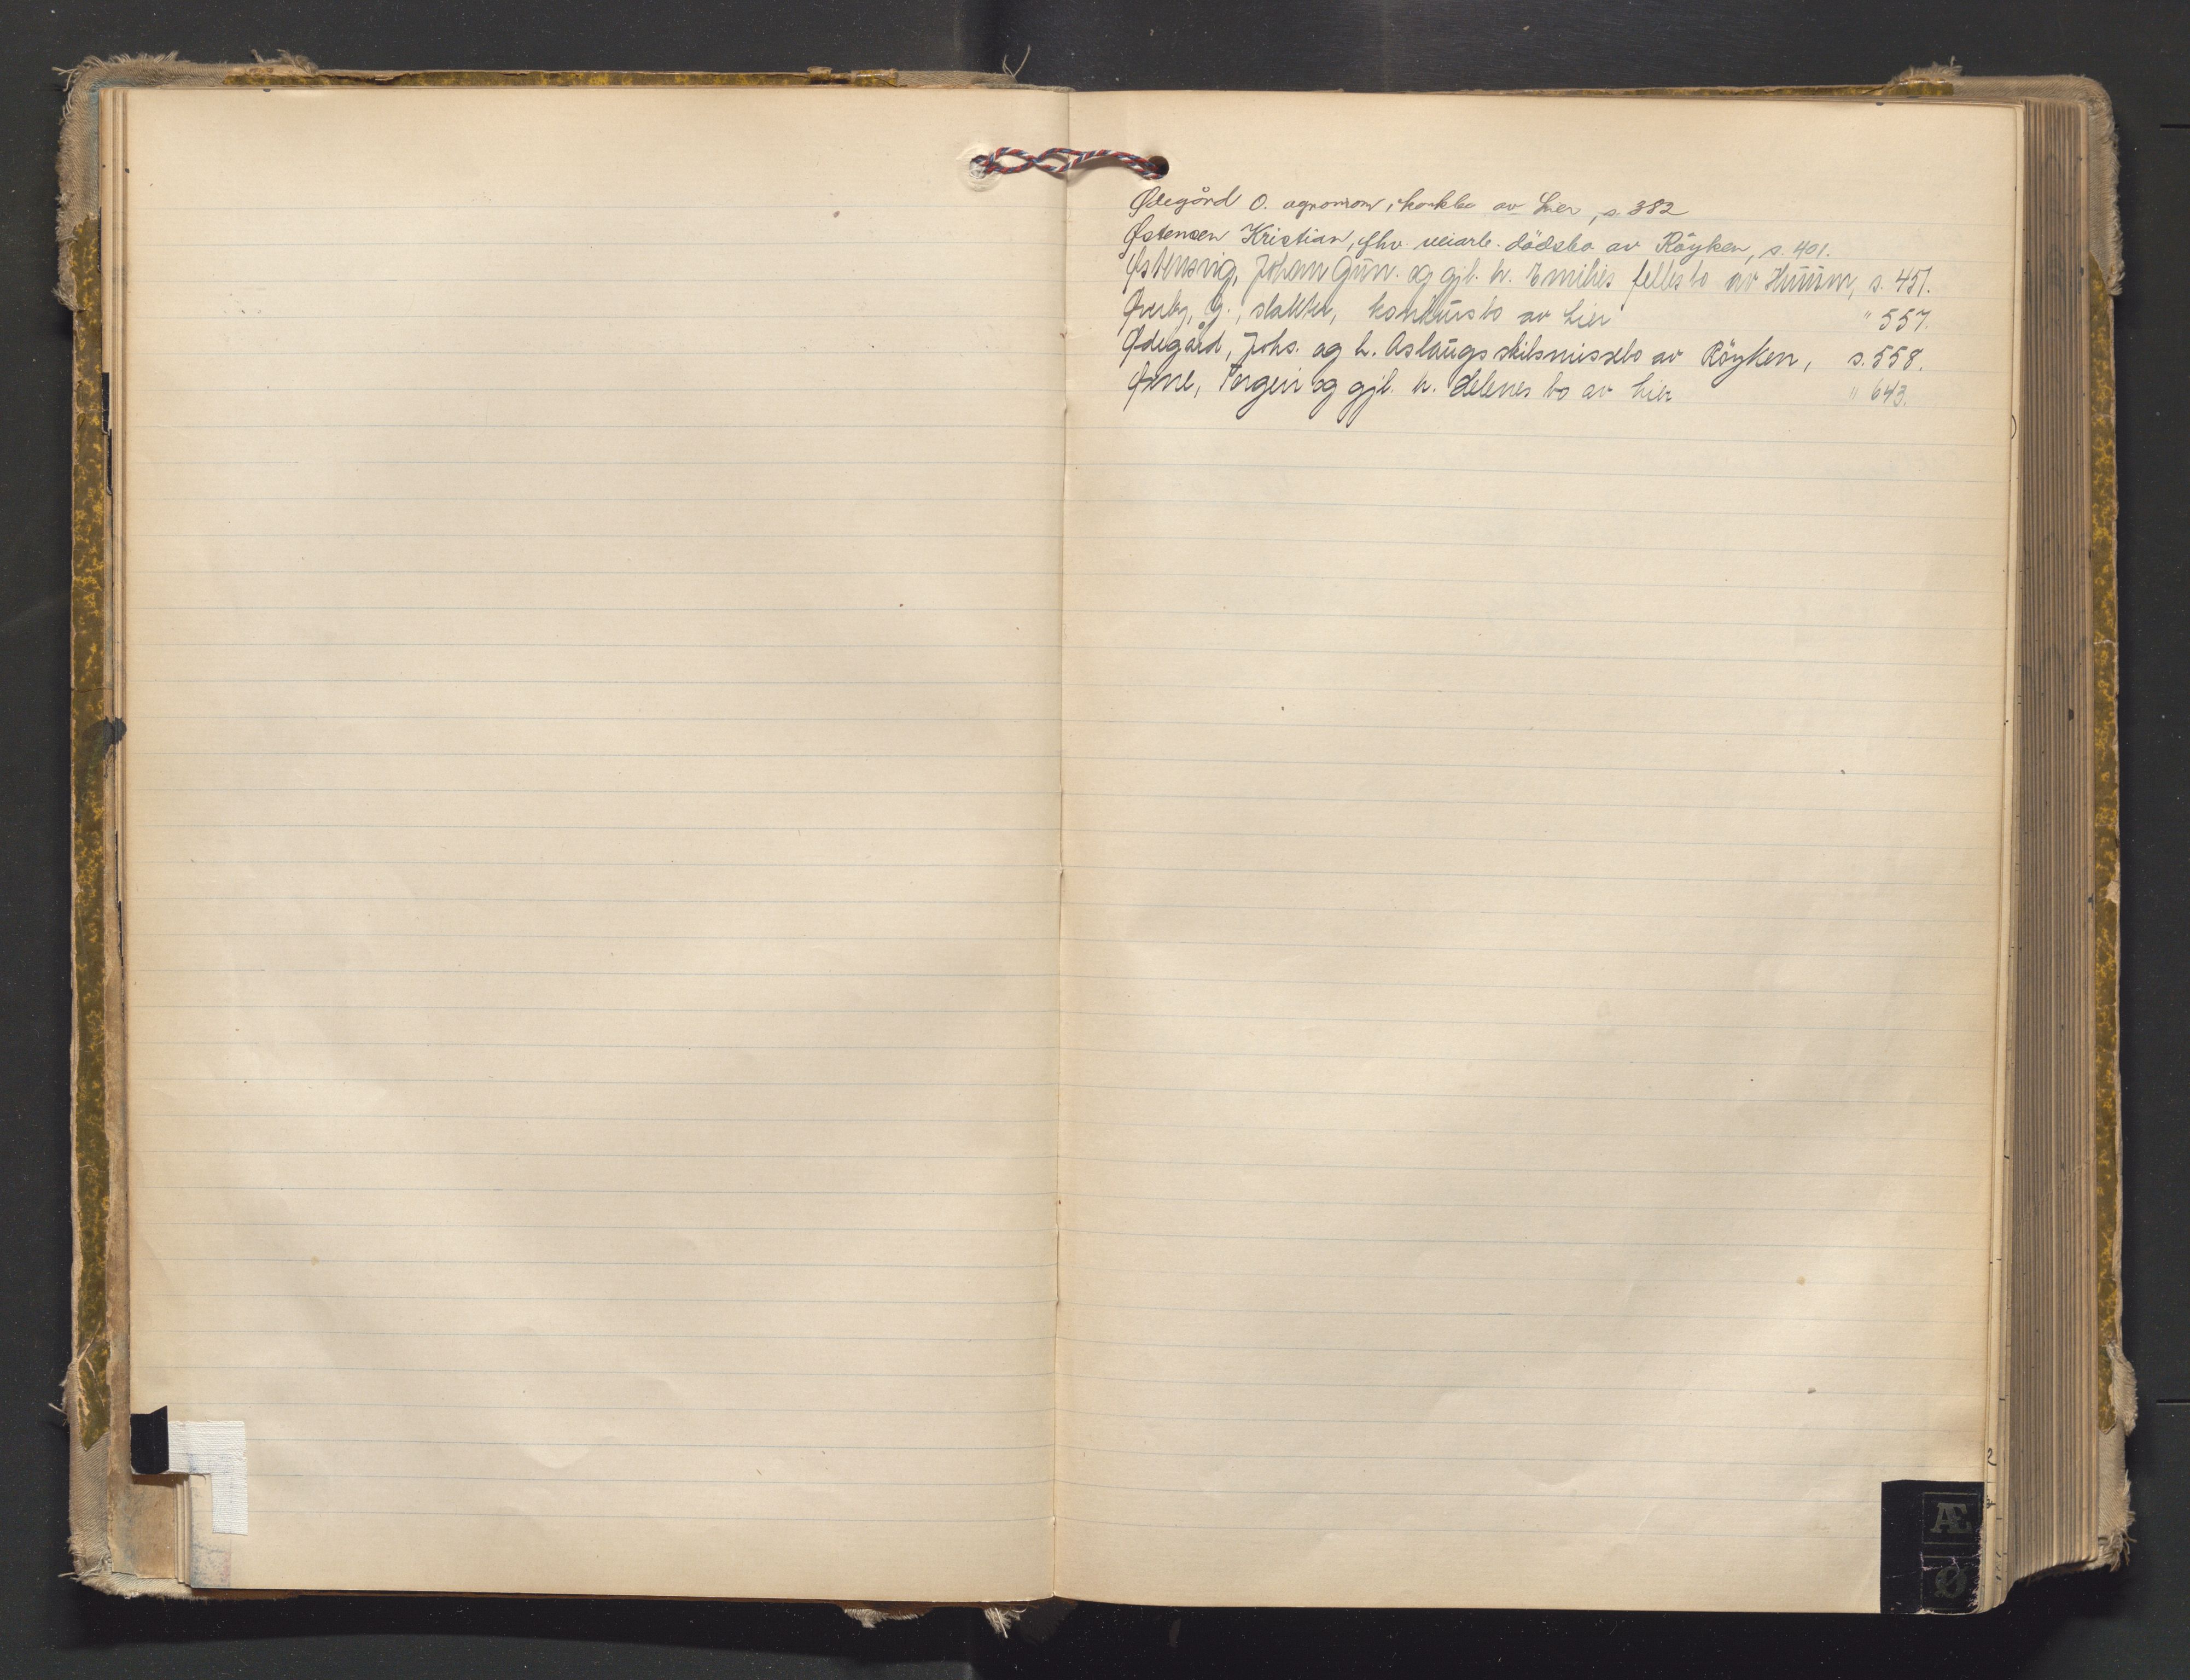 Ødegård O. agronom, konkbo av Lier, s. 382
Østensen Kristian, fhv. veiarb. dödsbo av Röyken, s. 401.
Østensvig, Johan Gun. og gjl. h. Emilies fellesbo av Hurum, s. 451.
Øverby, G., slakter, konkursbo av Lier " 557.
Ødegård, Johs. og h. Aslaugs skilsmissebo av Röyken, s. 558.
Torgeir og gjl. h. Helenes bo av Lier " 643.
Æ
Ø